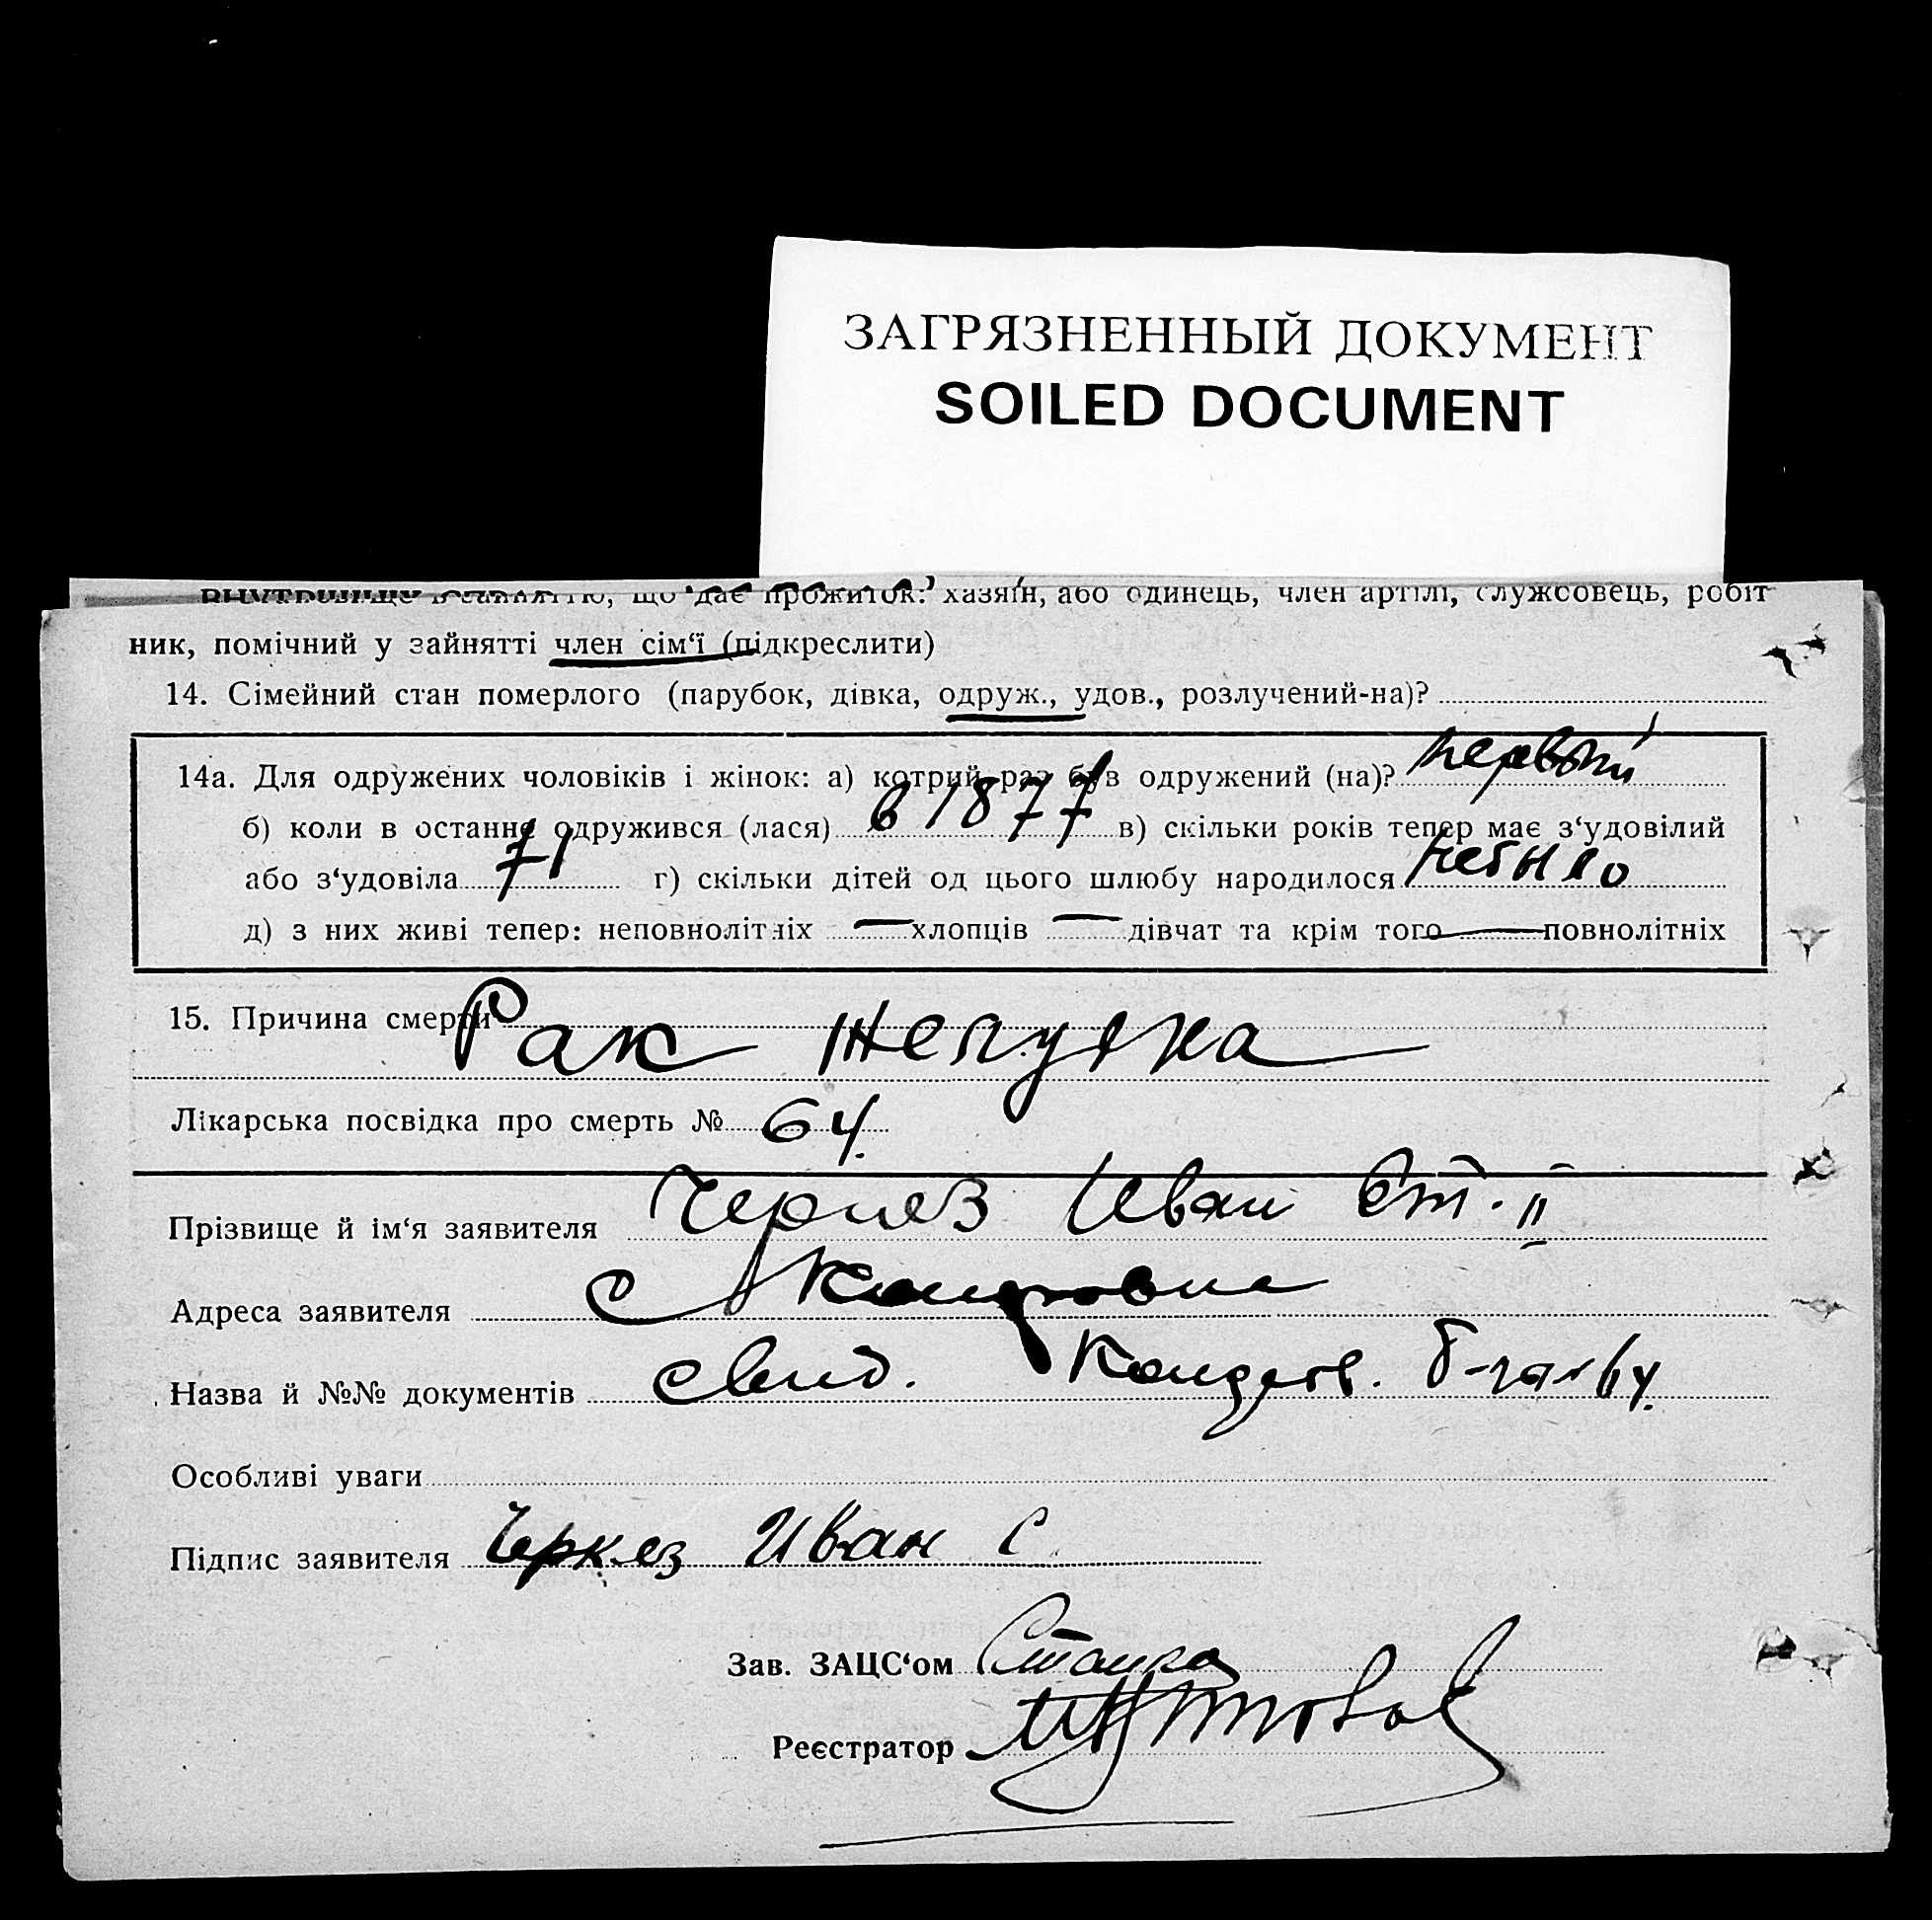 ЗАГРЯЗНЕННЫЙ ДОКУМЕНТ
SOILED DOCUMENT
що дає прожиток: хазяїн, або одинець, член артілі, службовець, робіт
ник, помічний у зайнятті член сім‘ї (підкреслити)
14. Сімейний стан померлого (парубок, дівка, одруж., удов., розлучений-на)?
14а. Для одружених чоловіків і жінок: а) котрий раз був одружений (на)? первый
б) коли в останнє одружився (лася) в 1877 в) скільки років тепер має з‘удовілий
або з‘удовіла 71 г) скільки дітей од цього шлюбу народилося небыло
д) з них живі тепер: неповнолітніх — хлопців — дівчат та крім того — повнолітніх
15. Причина смерти Рак желудка
Лікарська посвідка про смерть № 64.
Прізвище й ім‘я заявителя Черкез Иван Ст. II
Адреса заявителя с
Назва й №№ документів свид. 64.
Особливі уваги
Підпис заявителя Черкез Иван С
Зав. ЗАЦС‘ом
Реєстратор